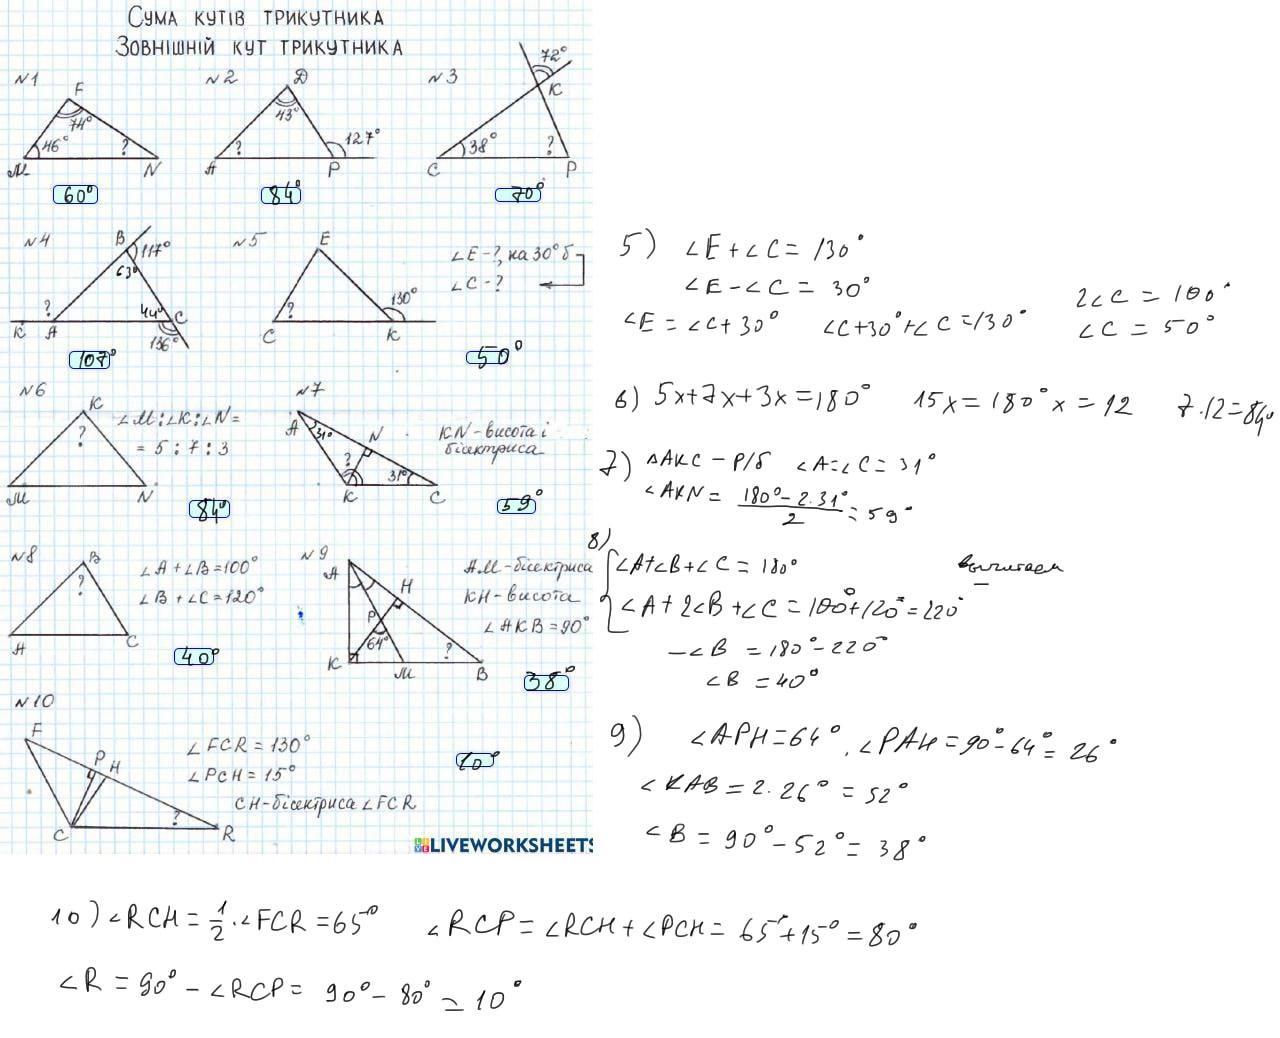 СУМА КУТІВ ТРИКУТНИКА
ЗОВНІШНІЙ КУТ ТРИКУТНИКА
№1
F
74°
46°
?
M
N
60°
№2
Д
43°
?
127°
A
P
84°
№3
72°
K
38°
?
C
P
70°
№4
B
117°
63°
?
44°
K
A
C
136°
107°
№5
E
?
130°
C
K
∠E-?, на 30° б
∠C-?
50°
№6
K
?
M
N
∠M:∠K:∠N=
= 5 : 7 : 3
84°
№7
A
31°
N
?
31°
K
C
KN-висота і
бісектриса
59°
№8
B
?
A
C
∠A+∠B=100°
∠B+∠C=120°
40°
№9
A
H
P
64°
?
K
M
B
AM-бісектриса
KH-висота
∠AKB=90°
38°
№10
F
P H
?
C
R
∠FCR=130°
∠PCH=15°
CH-бісектриса ∠FCR
10°
LIVEWORKSHEETS
5) ∠E+∠C=130°
∠E-∠C=30°
∠E=∠C+30° ∠C+30°+∠C=130°
2∠C=100°
∠C=50°
6) 5x+7x+3x=180° 15x=180° x=12 7·12=84°
7) △AKC - р/б ∠A=∠C=31°
∠AKN= 180°-2·31° / 2 = 59°
8)
∠A+∠B+∠C=180° вычитаем
∠A+2∠B+∠C=100°+120°=220°
-∠B =180°-220°
∠B =40°
9) ∠APH=64°, ∠PAH=90°-64°=26°
∠KAB=2·26°=52°
∠B=90°-52°=38°
10) ∠RCH=1/2·∠FCR=65° ∠RCP=∠RCH+∠PCH=65°+15°=80°
∠R=90°-∠RCP=90°-80°=10°